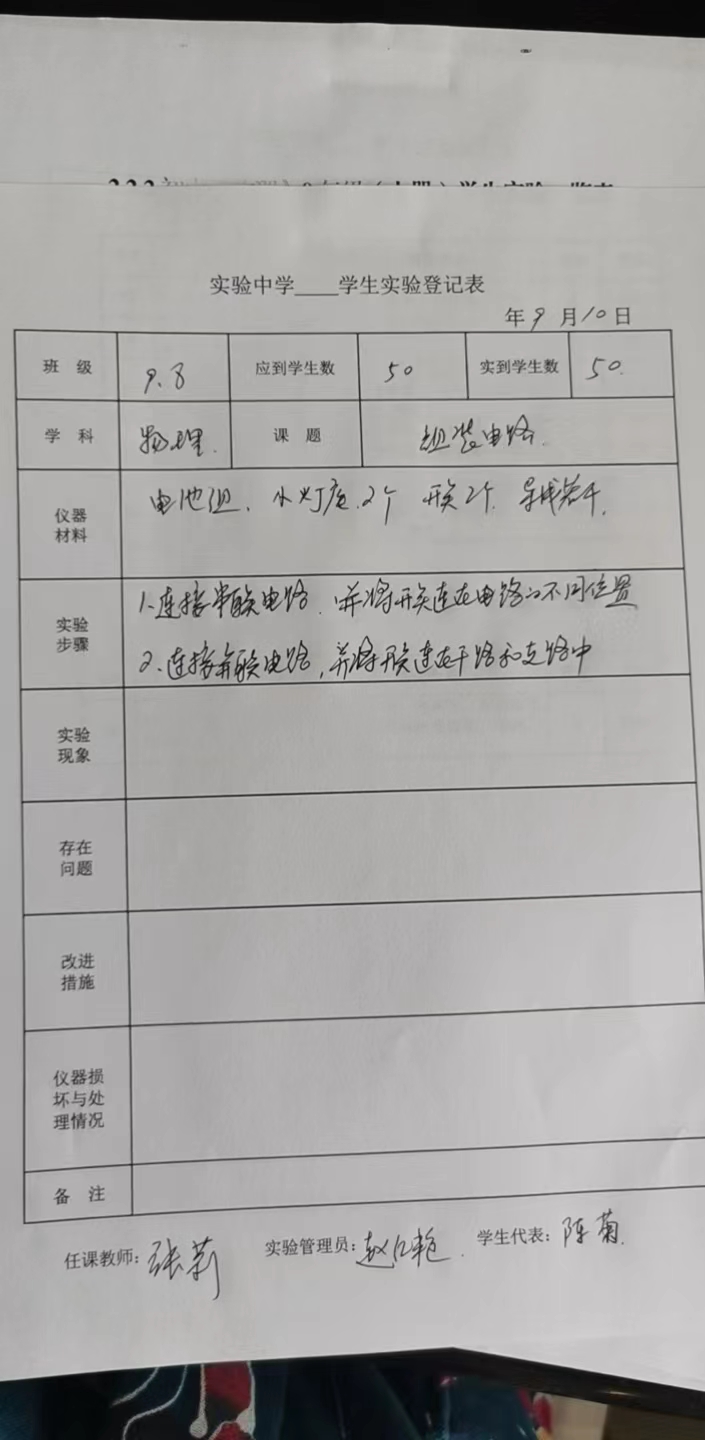 实验中学____学生实验登记表
年 9 月 10 日
班 级 9.8 应到学生数 50 实到学生数 50.
学 科 物理. 课 题 组装电路.
仪器材料 电池组、小灯座、2个 开关2个 导线若干.
实验步骤 1.连接串联电路.并将开关连在电路的不同位置
2.连接并联电路,并将开关连在干路和支路中
实验现象
存在问题
改进措施
仪器损坏与处理情况
备 注
任课教师: 张莉 实验管理员: 赵 艳. 学生代表: 陈菊.